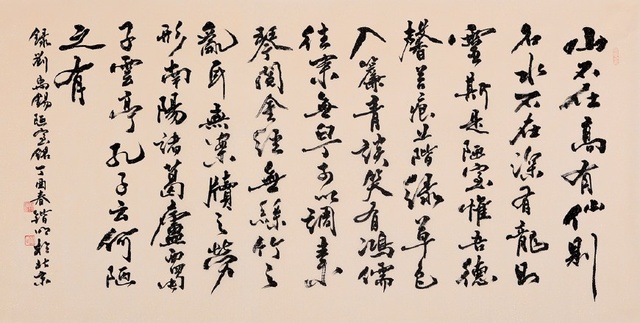 山不在高有仙則
名水不在深有龍則
靈斯是陋室惟吾德
馨苔痕上階綠草色
入簾青談笑有鴻儒
往來無白丁可以調素
琴閱金經無絲竹之
亂耳無案牘之勞
形南陽諸葛廬西蜀
子雲亭孔子云何陋
之有
錄劉禹錫陋室銘丁酉春於北京